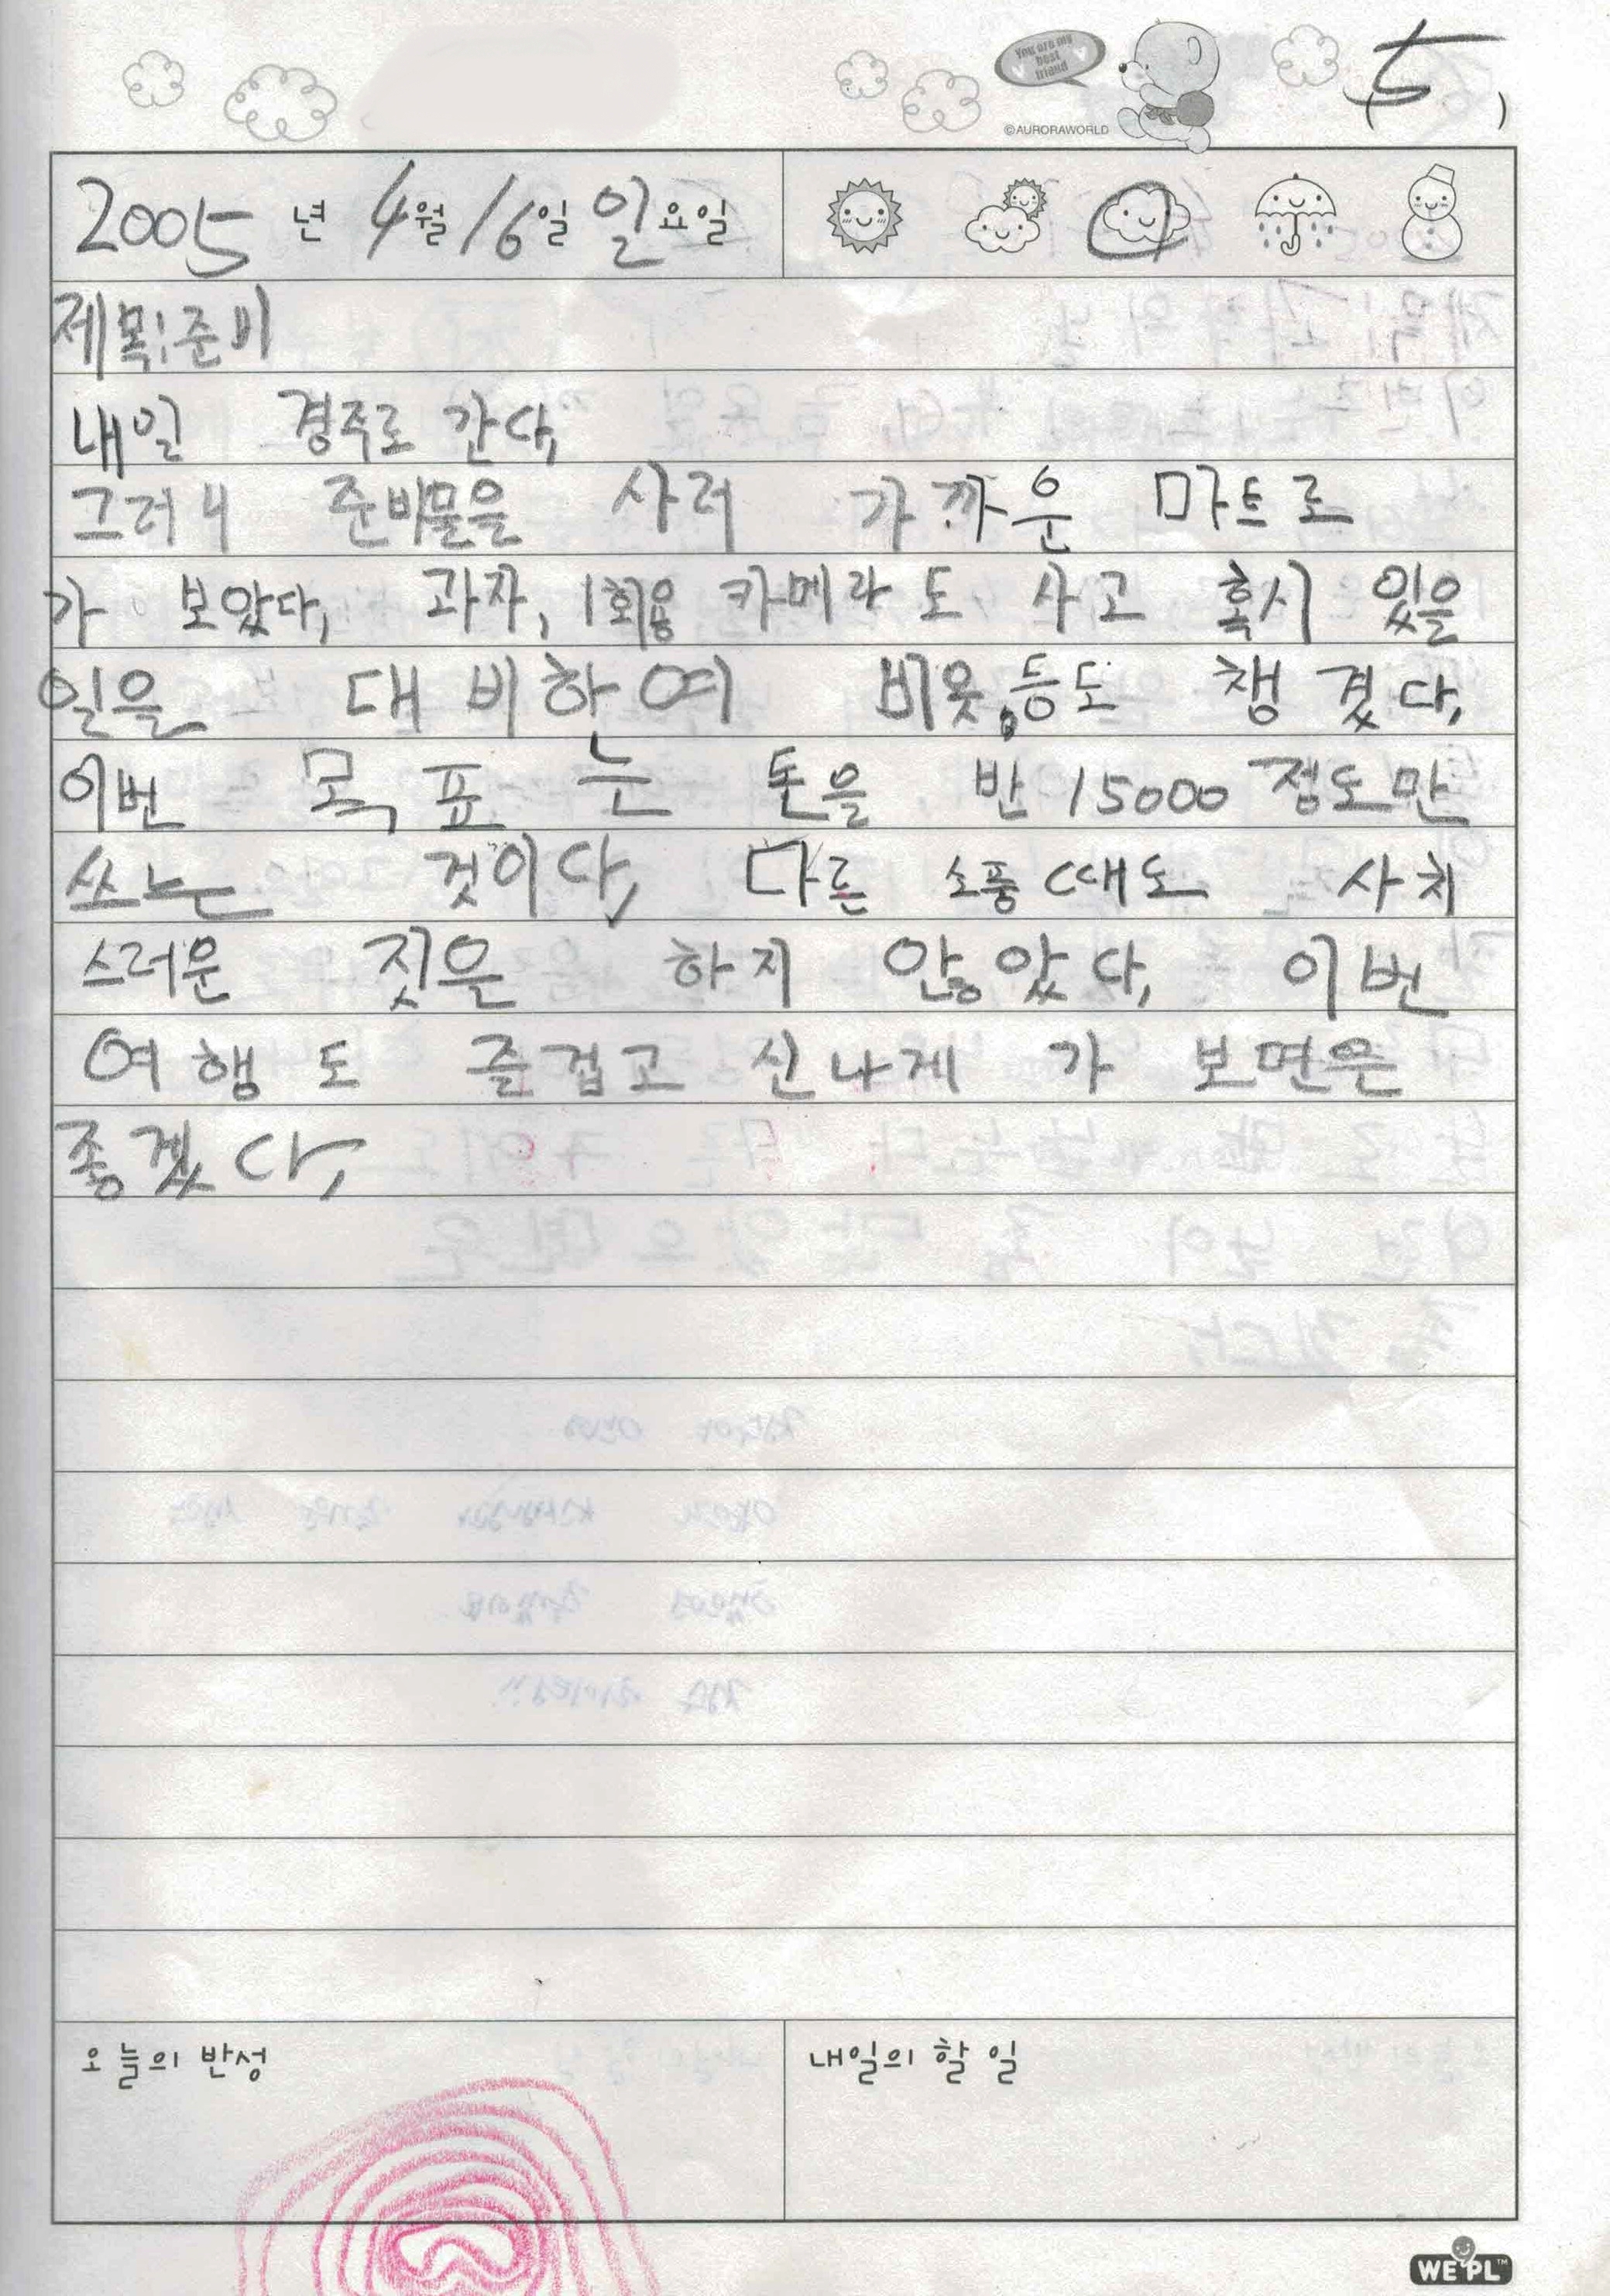 You are my
best
friend
©AURORAWORLD
(5)
2005년 4월 16일 일요일
제목:준비
내일 경주로 간다,
그러니 준비물을 사러 가까운 마트로
가 보았다, 과자, 1회용 카메라도 사고 혹시 있을
일을 대비하여 비옷,등도 챙겼다,
이번 목표는 돈을 반 15000 정도만
쓰는 것이다, 다른 소풍때도 사치
스러운 짓은 하지 않았다, 이번
여행도 즐겁고 신나게 가 보면은
좋겠다,
오늘의 반성
내일의 할 일
WE PL™